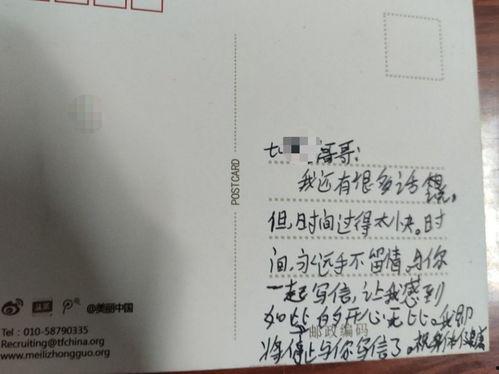 POSTCARD
哥哥:
我还有很多话
但,时间过得太快。时
间,永远手不留情。与你
一起写信,让我感到
如此的开心无比。我即
将停止与你写信了。祝身体健康
邮政编码
@美丽中国
Tel : 010-58790335
Recruiting@tfchina.org
www.meilizhongguo.org